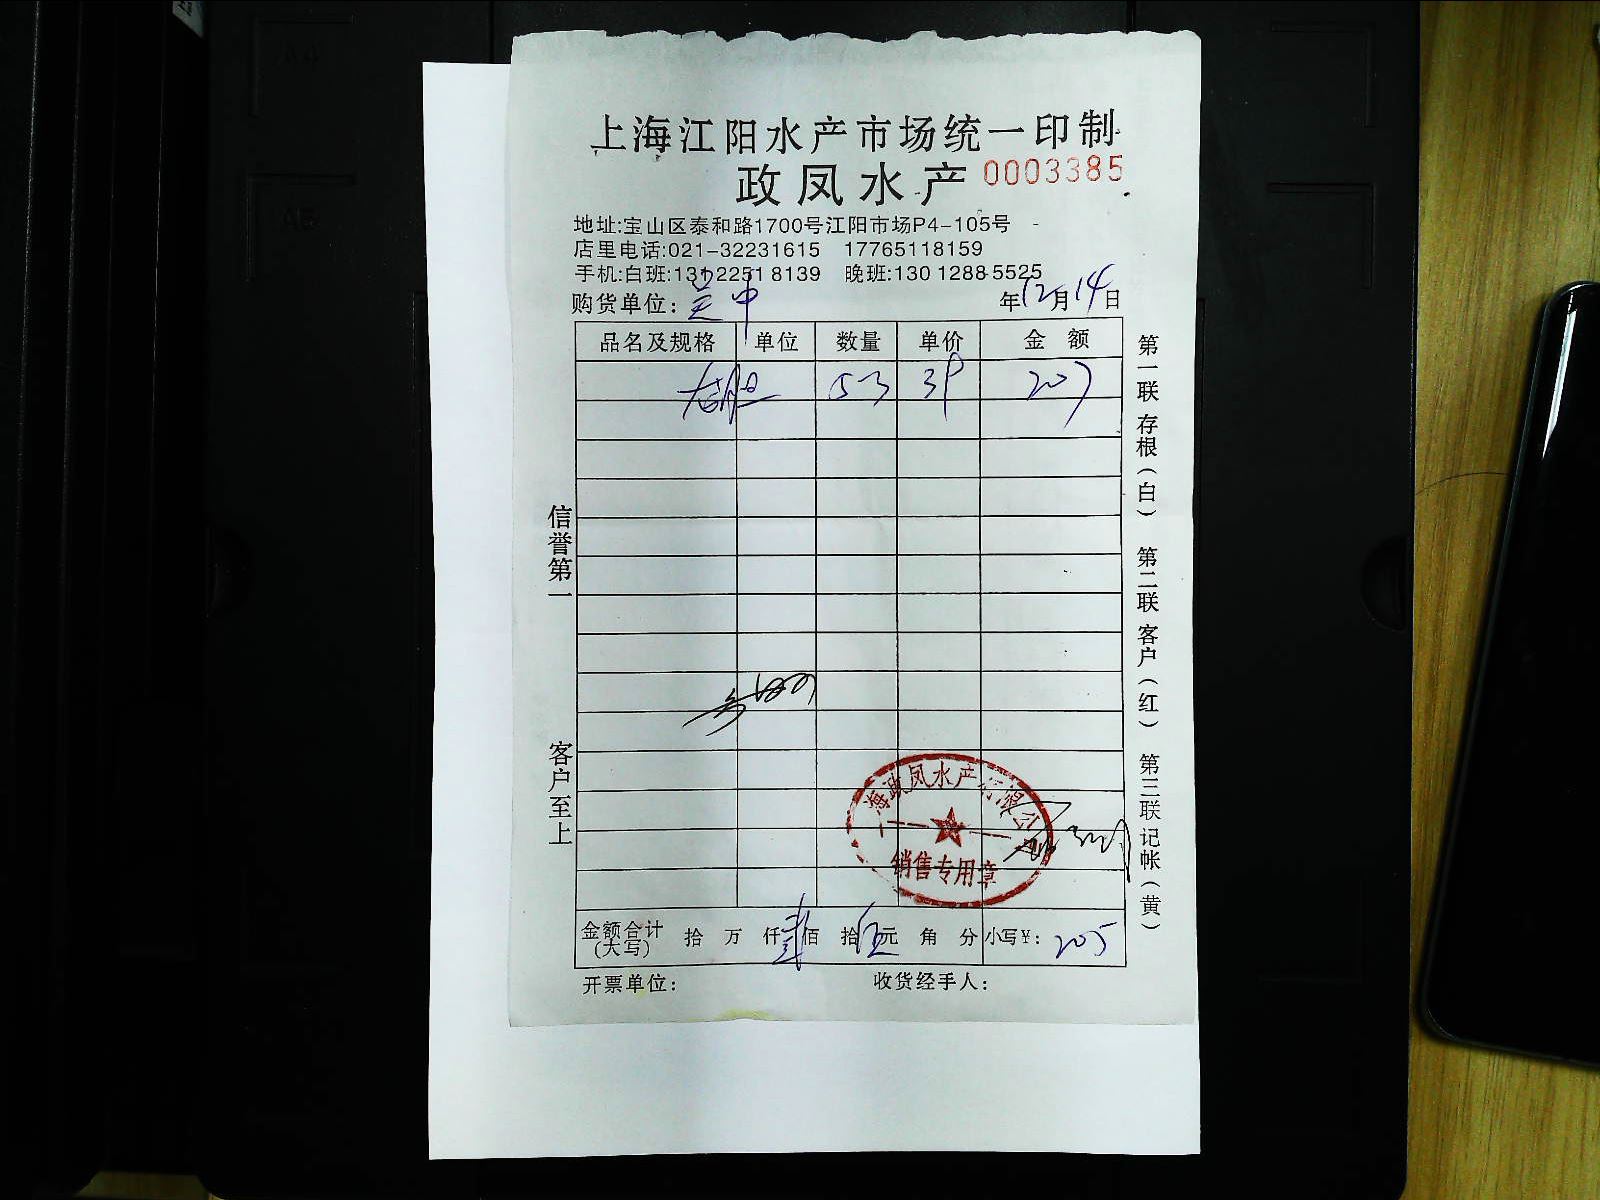 上海江阳水产市场统一印制
政凤水产 0003385
地址:宝山区泰和路1700号江阳市场P4-105号
店里电话:021-32231615 17765118159
手机:白班:131 2251 8139 晚班:130 1288 5525
购货单位: 年12月14日
品名及规格 单位 数量 单价 金 额
53 39 207
信誉第一
客户至上
第一联 存根(白) 第二联 客户(红) 第三联 记帐(黄)
海政凤水产有限公司
销售专用章
金额合计(大写) 拾 万 仟 贰 佰 拾 伍 元 角 分 小写¥: 205
开票单位: 收货经手人: